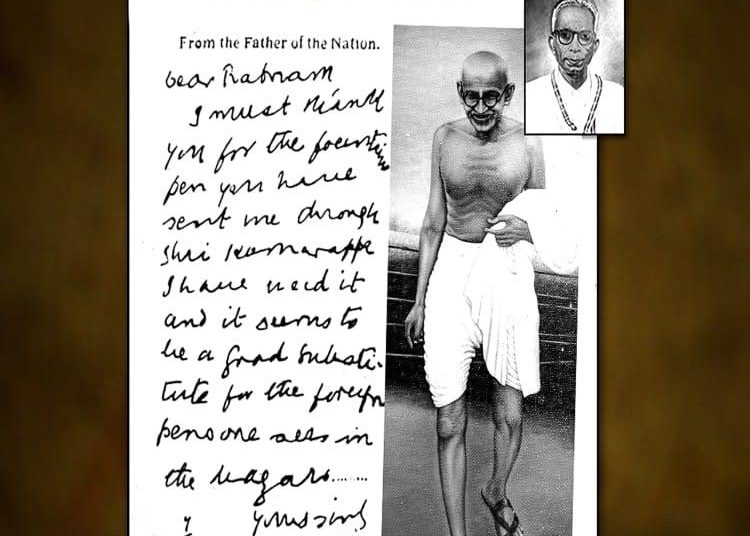 From the Father of the Nation.
Dear Ratnam
I must thank
you for the fountain
pen you have
sent me through
Shri Kumarappa
I have used it
and it seems to
be a good substi-
tute for the foreign
pens one sees in
the bazars......
Yours sinly